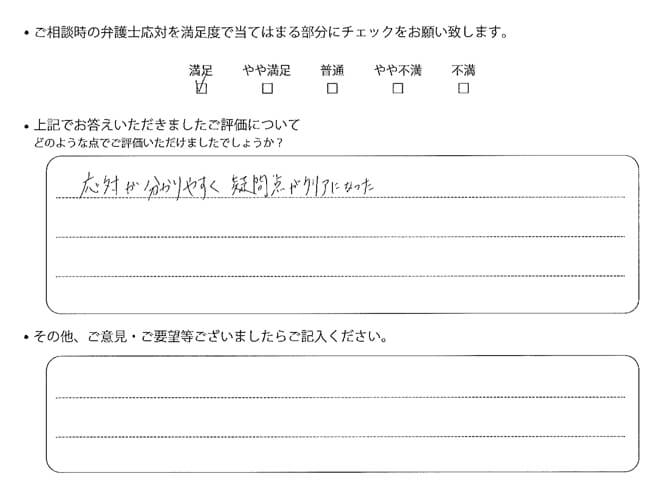 • ご相談時の弁護士応対を満足度で当てはまる部分にチェックをお願い致します。
満足 やや満足 普通 やや不満 不満
• 上記でお答えいただきましたご評価について
どのような点でご評価いただけましたでしょうか？
応対が分かりやすく 疑問点がクリアになった
• その他、ご意見・ご要望等ございましたらご記入ください。